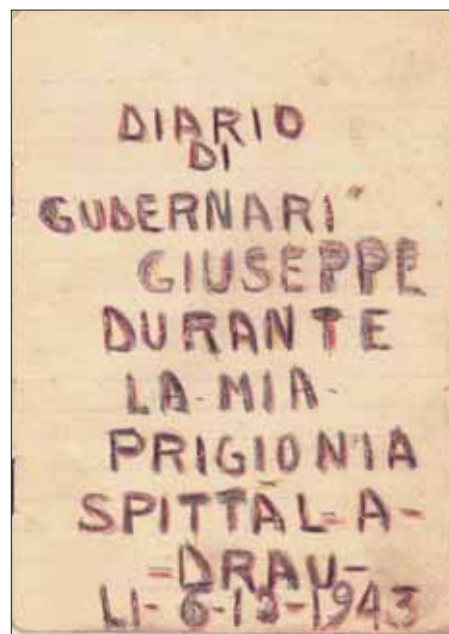 DIARIO
DI
GUBERNARI
GIUSEPPE
DURANTE
LA-MIA-
PRIGIONIA
SPITTAL=A-
=DRAU-
LI- 6-12-1943